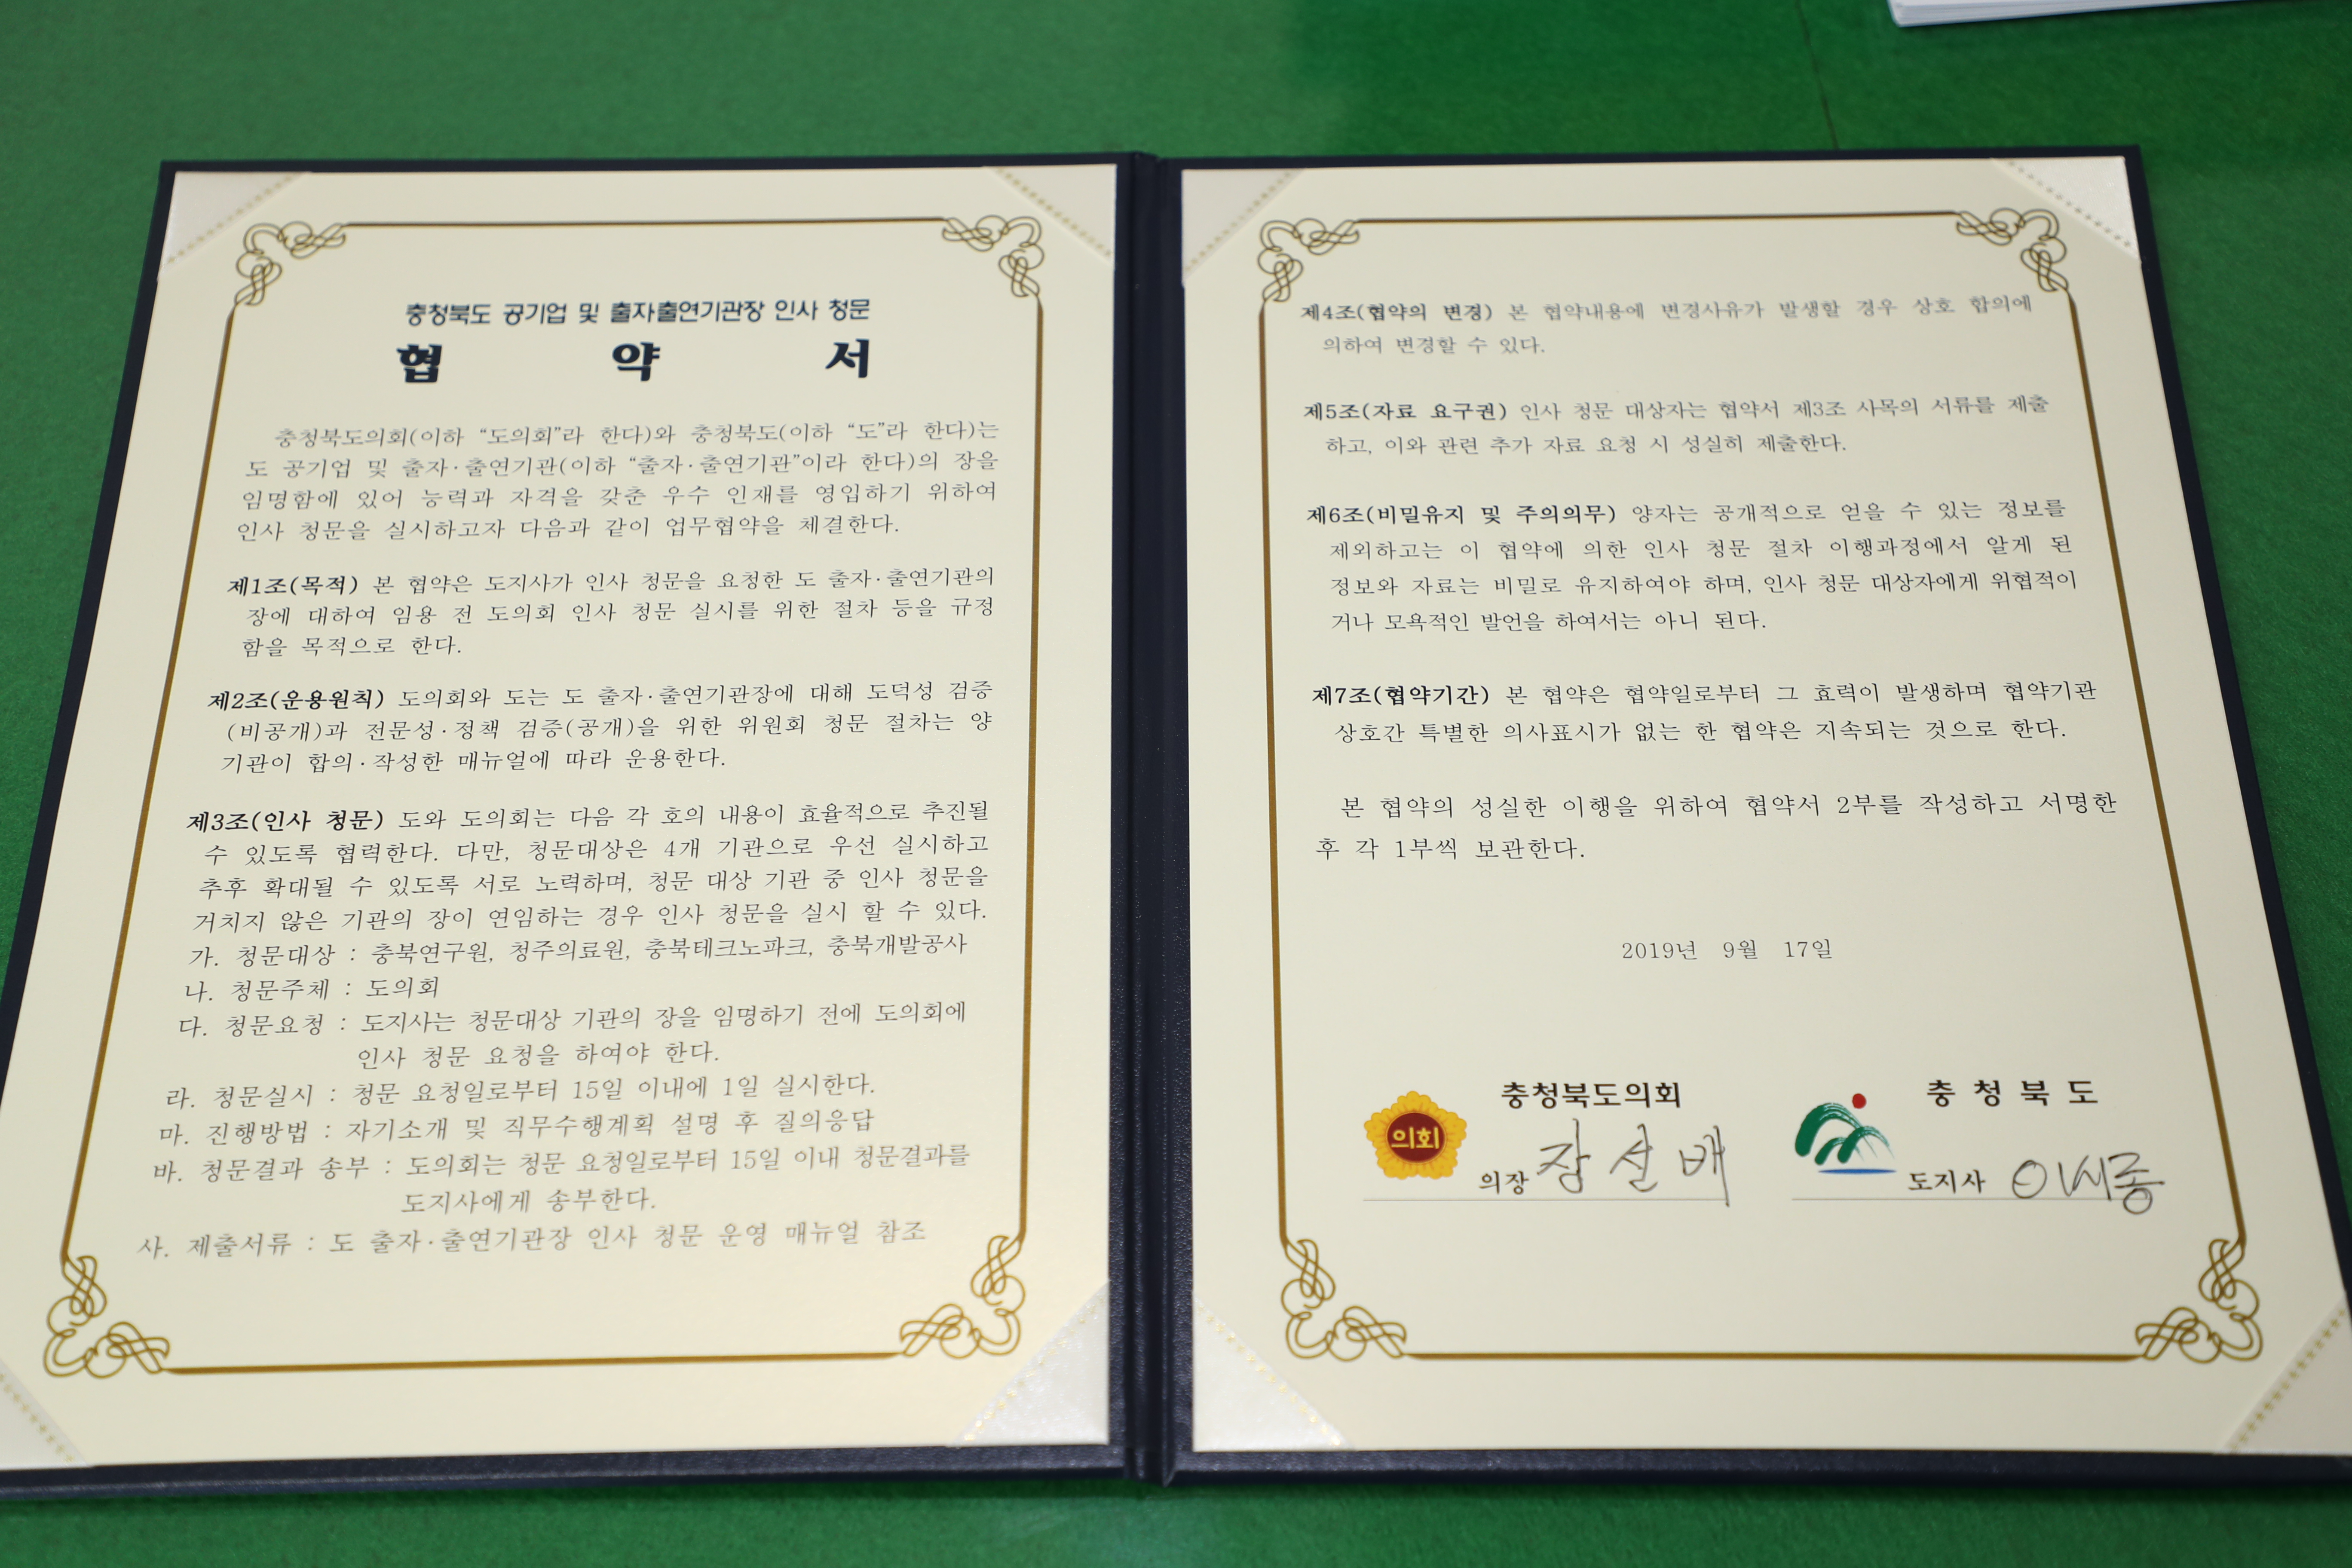 충청북도 공기업 및 출자출연기관장 인사 청문
협 약 서
충청북도의회(이하 “도의회”라 한다)와 충청북도(이하 “도”라 한다)는
도 공기업 및 출자·출연기관(이하 “출자·출연기관”이라 한다)의 장을
임명함에 있어 능력과 자격을 갖춘 우수 인재를 영입하기 위하여
인사 청문을 실시하고자 다음과 같이 업무협약을 체결한다.
제1조(목적) 본 협약은 도지사가 인사 청문을 요청한 도 출자·출연기관의
장에 대하여 임용 전 도의회 인사 청문 실시를 위한 절차 등을 규정
함을 목적으로 한다.
제2조(운용원칙) 도의회와 도는 도 출자·출연기관장에 대해 도덕성 검증
(비공개)과 전문성·정책 검증(공개)을 위한 위원회 청문 절차는 양
기관이 합의·작성한 매뉴얼에 따라 운용한다.
제3조(인사 청문) 도와 도의회는 다음 각 호의 내용이 효율적으로 추진될
수 있도록 협력한다. 다만, 청문대상은 4개 기관으로 우선 실시하고
추후 확대될 수 있도록 서로 노력하며, 청문 대상 기관 중 인사 청문을
거치지 않은 기관의 장이 연임하는 경우 인사 청문을 실시 할 수 있다.
가. 청문대상 : 충북연구원, 청주의료원, 충북테크노파크, 충북개발공사
나. 청문주체 : 도의회
다. 청문요청 : 도지사는 청문대상 기관의 장을 임명하기 전에 도의회에
인사 청문 요청을 하여야 한다.
라. 청문실시 : 청문 요청일로부터 15일 이내에 1일 실시한다.
마. 진행방법 : 자기소개 및 직무수행계획 설명 후 질의응답
바. 청문결과 송부 : 도의회는 청문 요청일로부터 15일 이내 청문결과를
도지사에게 송부한다.
사. 제출서류 : 도 출자·출연기관장 인사 청문 운영 매뉴얼 참조
제4조(협약의 변경) 본 협약내용에 변경사유가 발생할 경우 상호 합의에
의하여 변경할 수 있다.
제5조(자료 요구권) 인사 청문 대상자는 협약서 제3조 사목의 서류를 제출
하고, 이와 관련 추가 자료 요청 시 성실히 제출한다.
제6조(비밀유지 및 주의의무) 양자는 공개적으로 얻을 수 있는 정보를
제외하고는 이 협약에 의한 인사 청문 절차 이행과정에서 알게 된
정보와 자료는 비밀로 유지하여야 하며, 인사 청문 대상자에게 위협적이
거나 모욕적인 발언을 하여서는 아니 된다.
제7조(협약기간) 본 협약은 협약일로부터 그 효력이 발생하며 협약기관
상호간 특별한 의사표시가 없는 한 협약은 지속되는 것으로 한다.
본 협약의 성실한 이행을 위하여 협약서 2부를 작성하고 서명한
후 각 1부씩 보관한다.
2019년 9월 17일
의회
충청북도의회
의장 장선배
충청북도
도지사 이시종